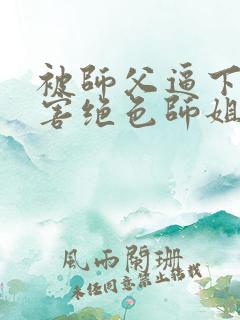 被師父逼下
害绝色師姐
風雨闌珊
未经同意禁止转载